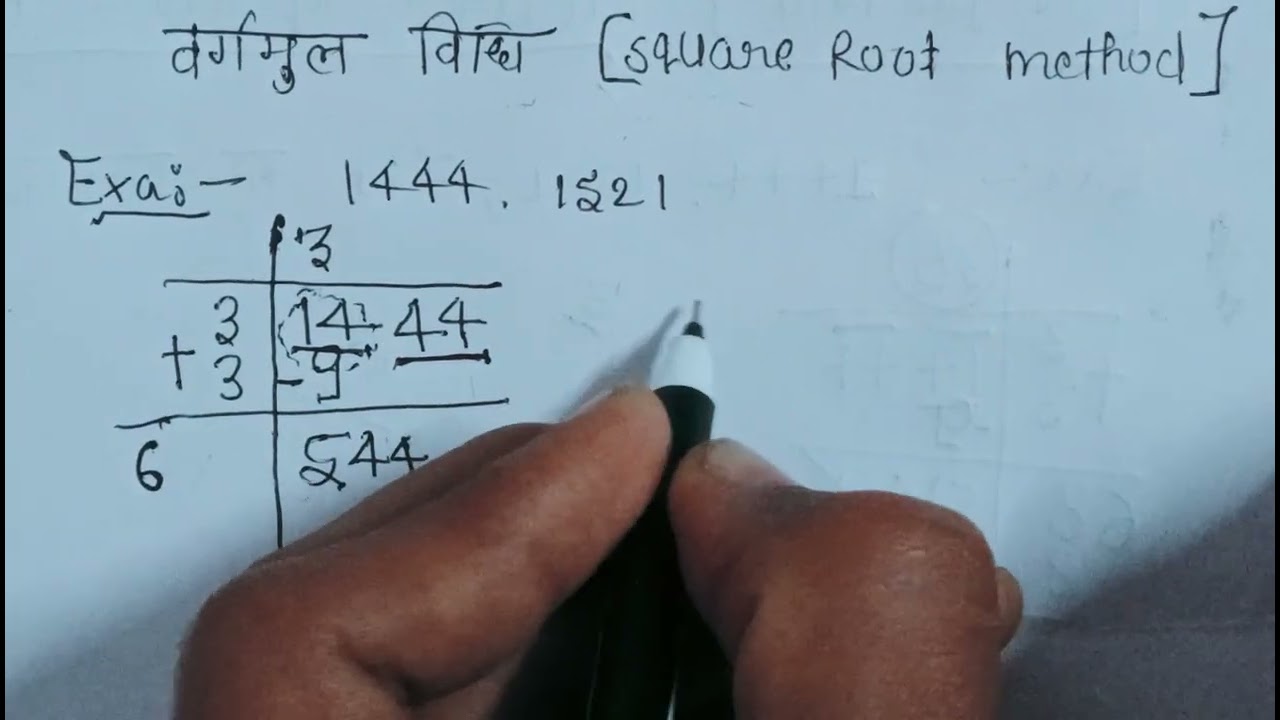 वर्गमुल विधि [square Root method]
Exa:- 1444, 1521
3
3 14 44
+ 3 - 9
6 544